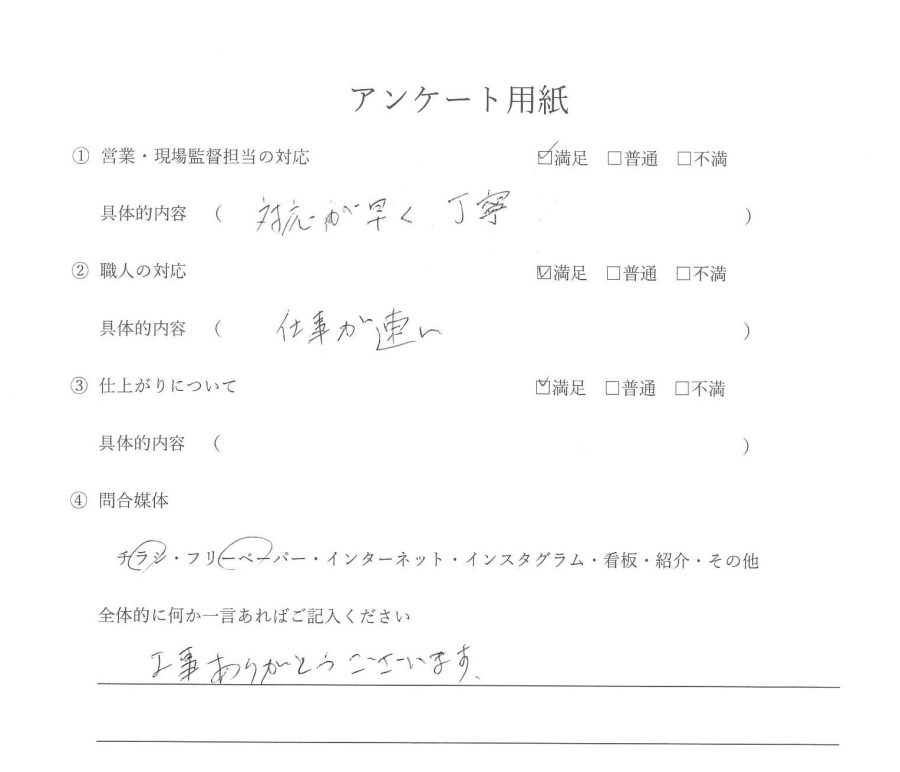 アンケート用紙
① 営業・現場監督担当の対応 ☑満足 □普通 □不満
具体的内容 （ 対応が早く 丁寧 ）
② 職人の対応 ☑満足 □普通 □不満
具体的内容 （ 仕事が速い ）
③ 仕上がりについて ☑満足 □普通 □不満
具体的内容 （ ）
④ 問合媒体
チラシ・フリーペーパー・インターネット・インスタグラム・看板・紹介・その他
全体的に何か一言あればご記入ください
工事ありがとうございます、